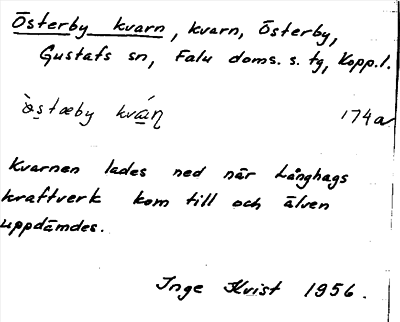 Österby kvarn, kvarn, Österby,
Gustafs sn, Falu doms. s. tg, Kopp.l.
174a
Kvarnen lades ned när Långhags
kraftverk kom till och älven
uppdämdes.
Inge Kvist 1956.